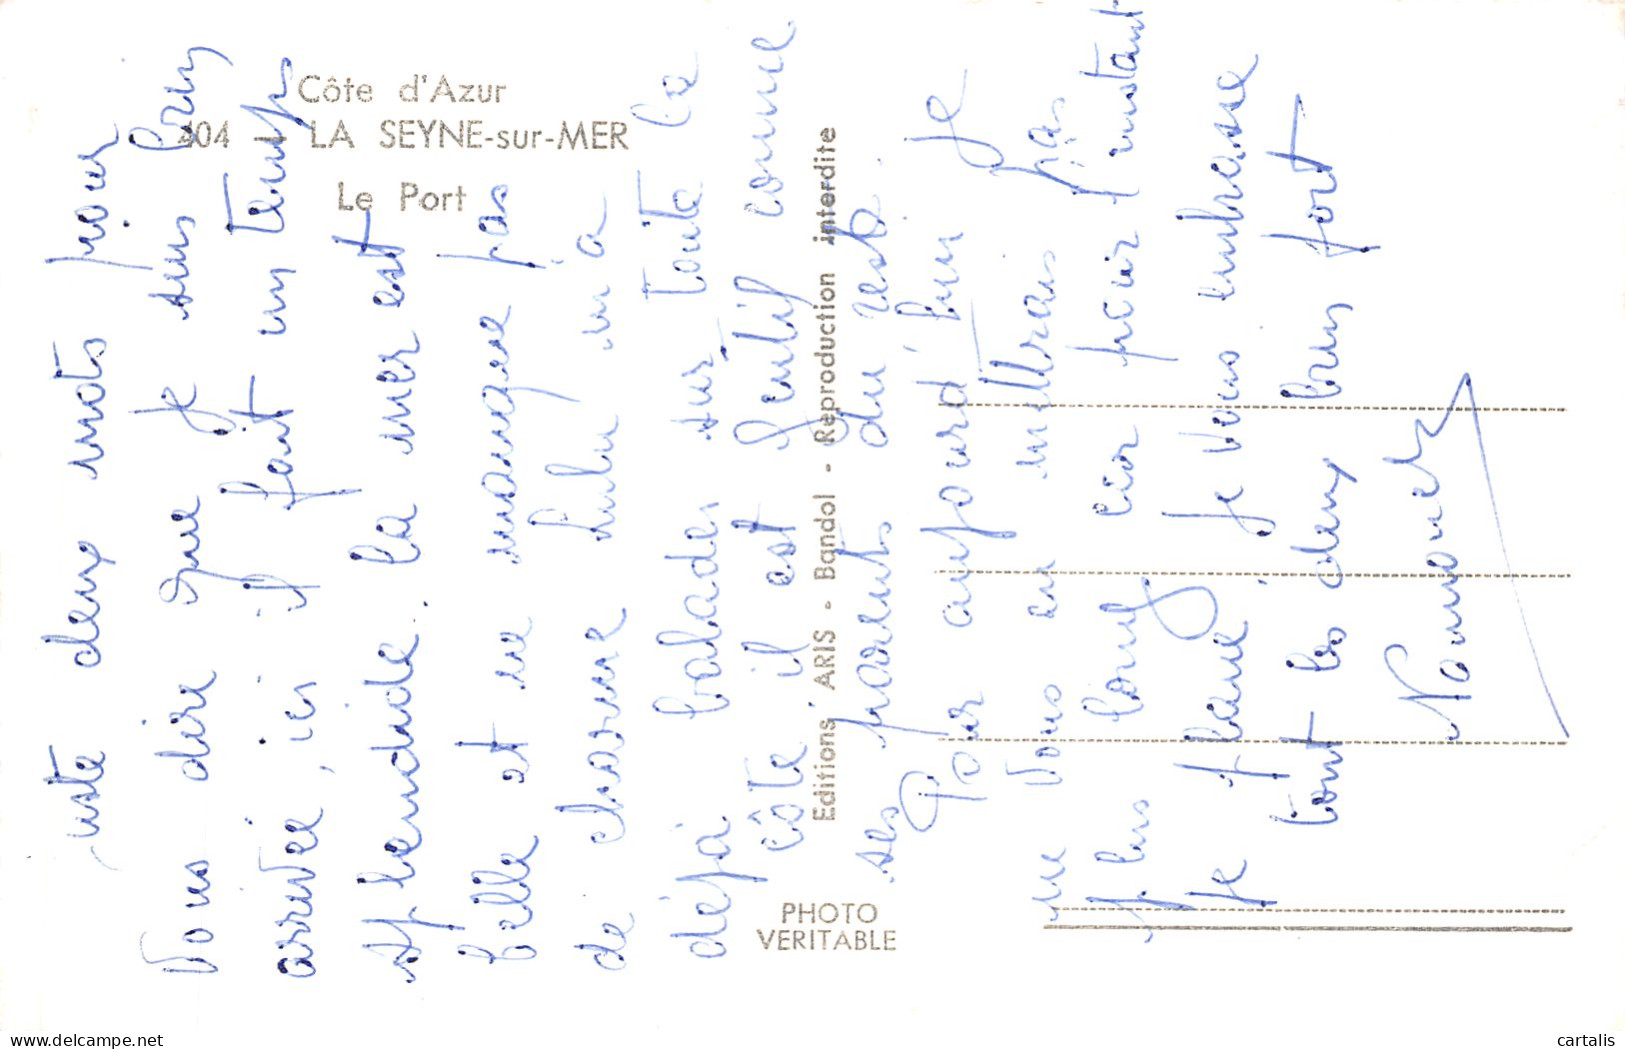 Côte d'Azur
404 - LA SEYNE-sur-MER
Le Port
Editions ARIS - Bandol - Reproduction interdite
PHOTO
VERITABLE
juste deux mots pour
Vous dire que je suis bien
arrivée, ici il fait un temps
splendide. la mer est
belle et ne manque pas
de charme Lulu m'a
déjà balader sur toute la
côte il est gentil comme
ses parents du reste.
Pour aujourd'hui je
ne vous en mettrais pas
plus long car pour l'instant
je plane, je vous embrasse
tout les deux bien fort
delcampe.net
cartalis